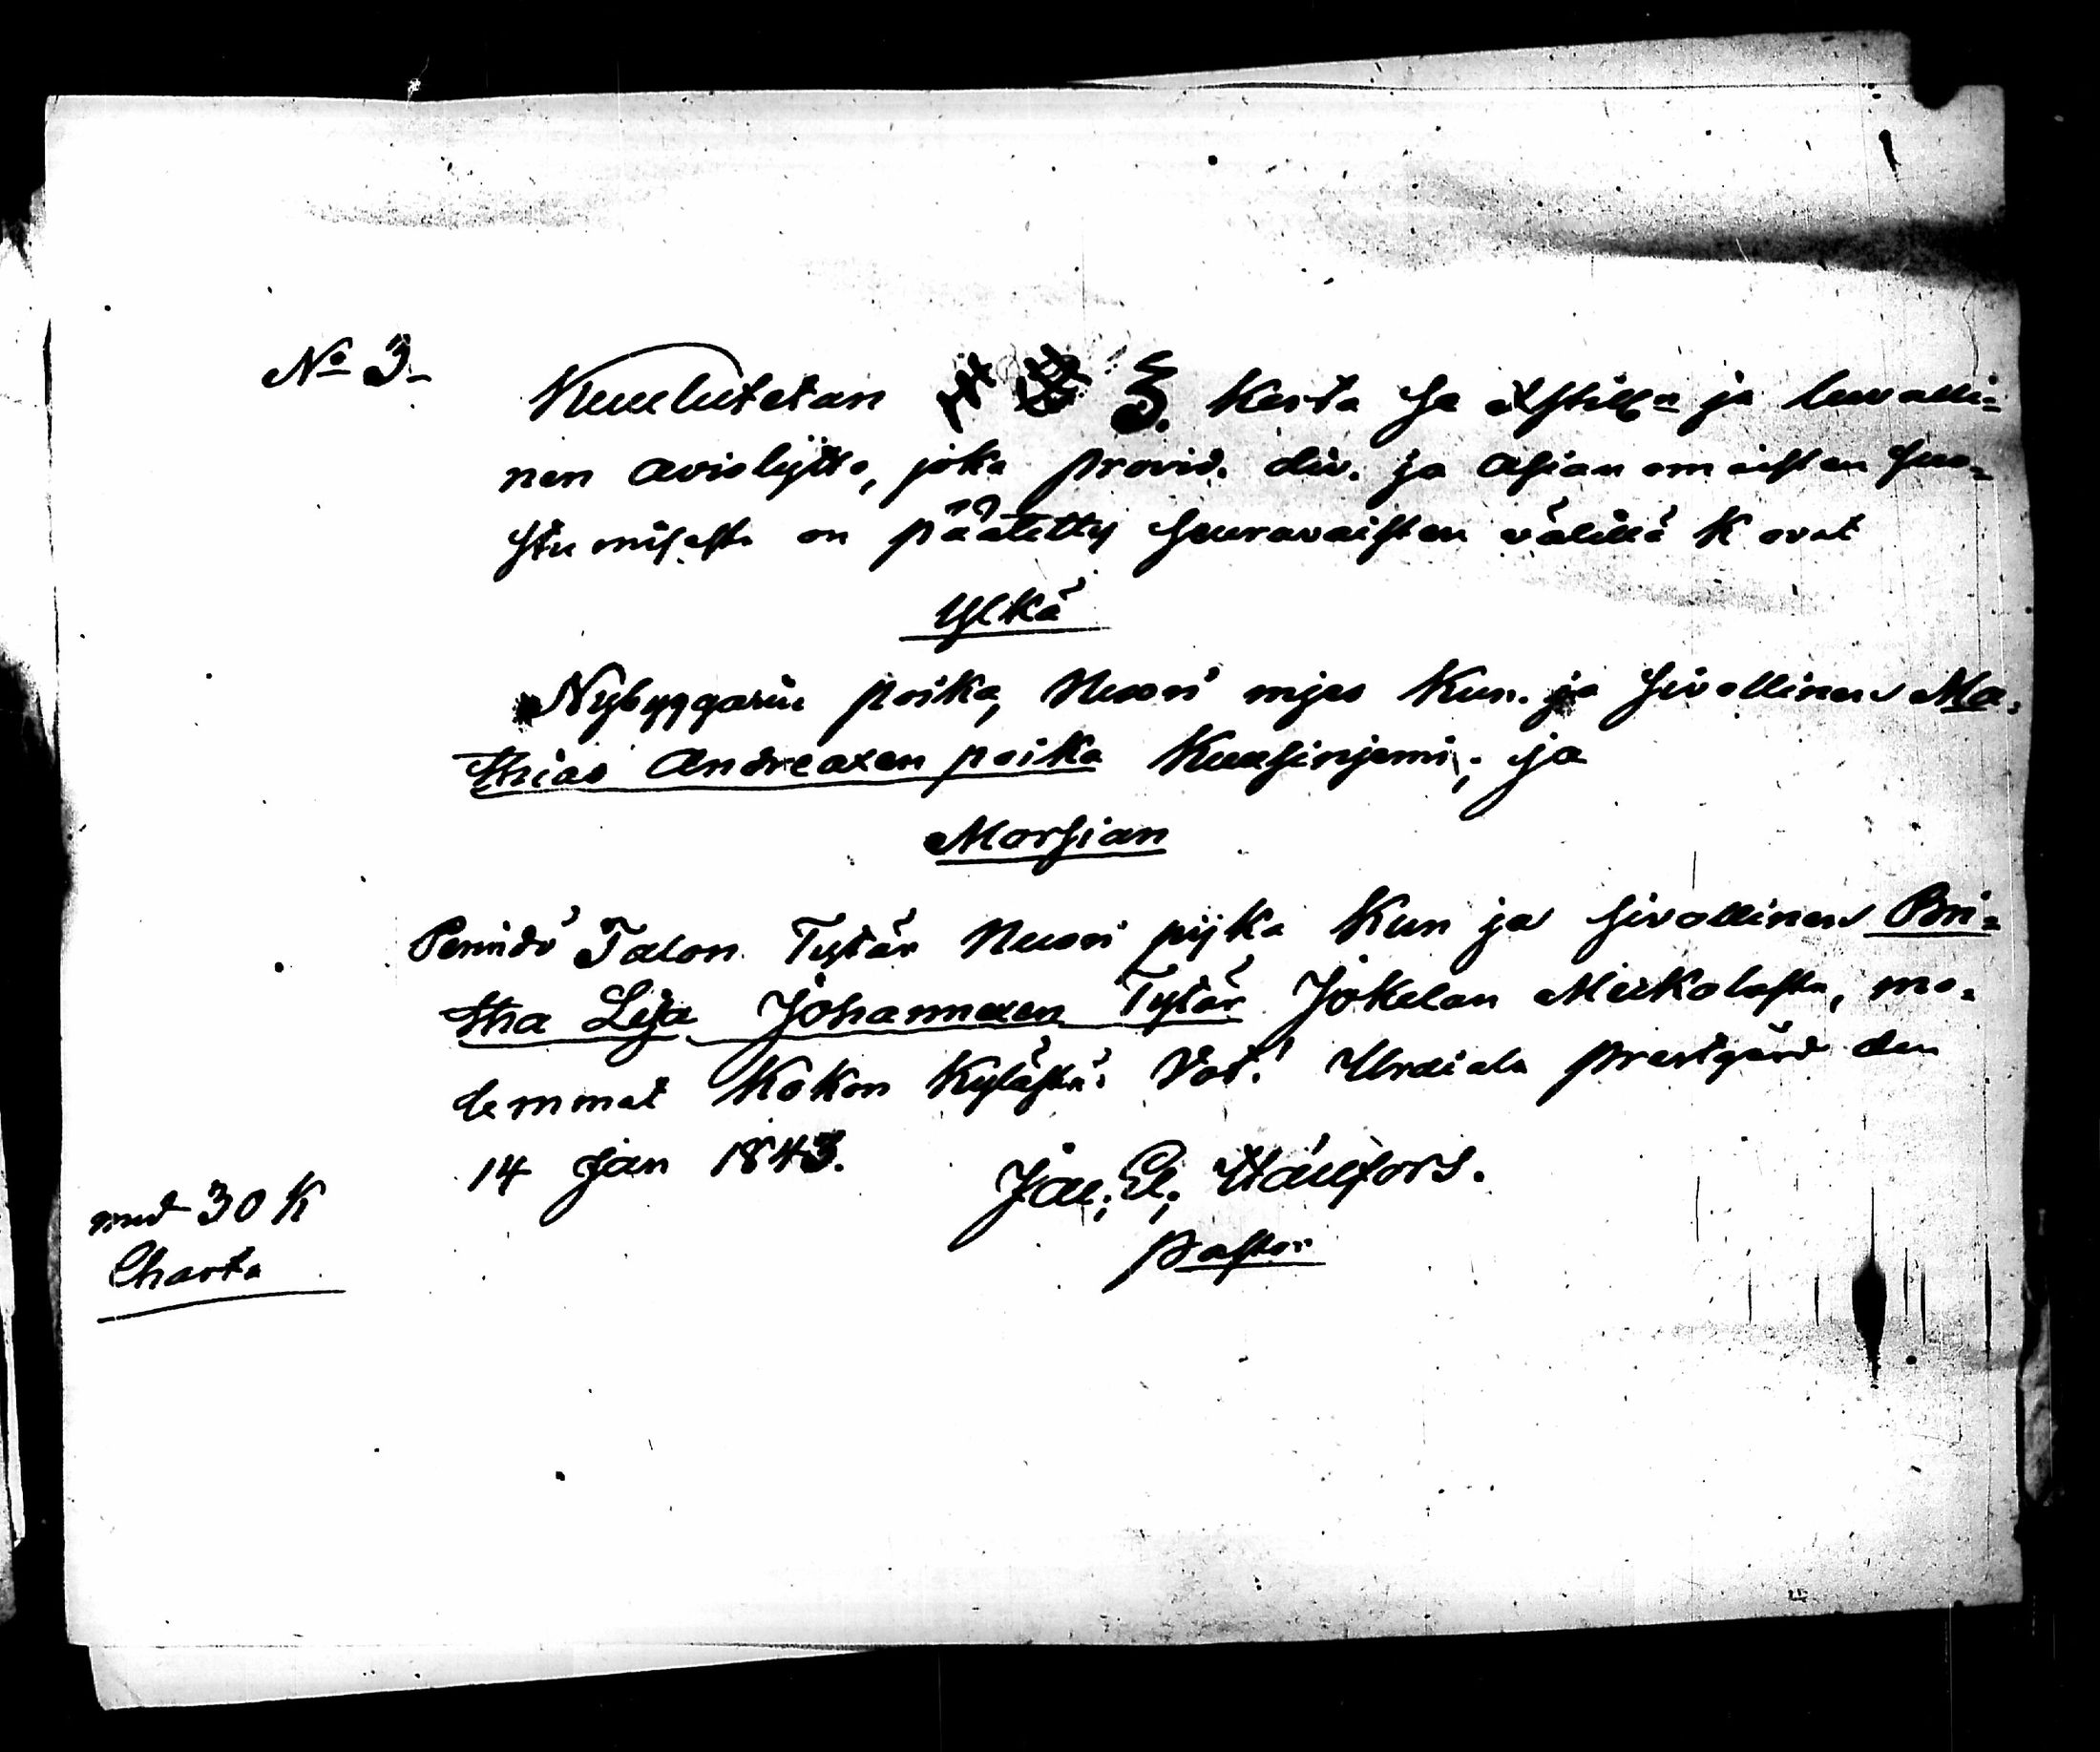 No 3.
Kuulutetan 3. Kerta se Xstill. ja luvalli-
nen avioliitto, joka provid. div. ja asian omaisten suo-
stumisesta on päätetty seuravaisten välillä K ovat
Ylkä
Nybyggarin poika, Nuori mjes Kun. ja sivollinen Ma-
thias Andreaxen poika Kuusinjemi; ja
Morsian
Perindö Talon Tytär Nuori pijka Kun ja sivollinen Bri-
tha Lisa Johannexen Tytär Jokelan Meskolasta, mo-
lemmat Kokon Kylästä. Vot! Urdiala prestgård den
14 Jan 1843.
Jac; El; Hällfors.
pastor
med 30 K
Charta